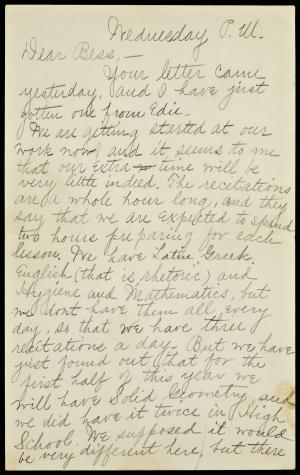 Wednesday P.M.
Dear Bess,—
Your letter came
yesterday, and I have just
gotten one from Edie.
We are getting started at our
work now, and it seems to me
that our extra time will be
very little indeed. The recitations
are a whole hour long, and they
say that we are expected to spend
two hours preparing for each
lesson. We have Latin, Greek,
English (that is, rhetoric) and
Hygiene and Mathematics, but
we dont have them all every
day, so that we have three
recitations a day. But we have
just found out that for the
first half of this year we
will have Solid Geometry, and
we did have it twice in High
School. We supposed it would
be very different here, but there